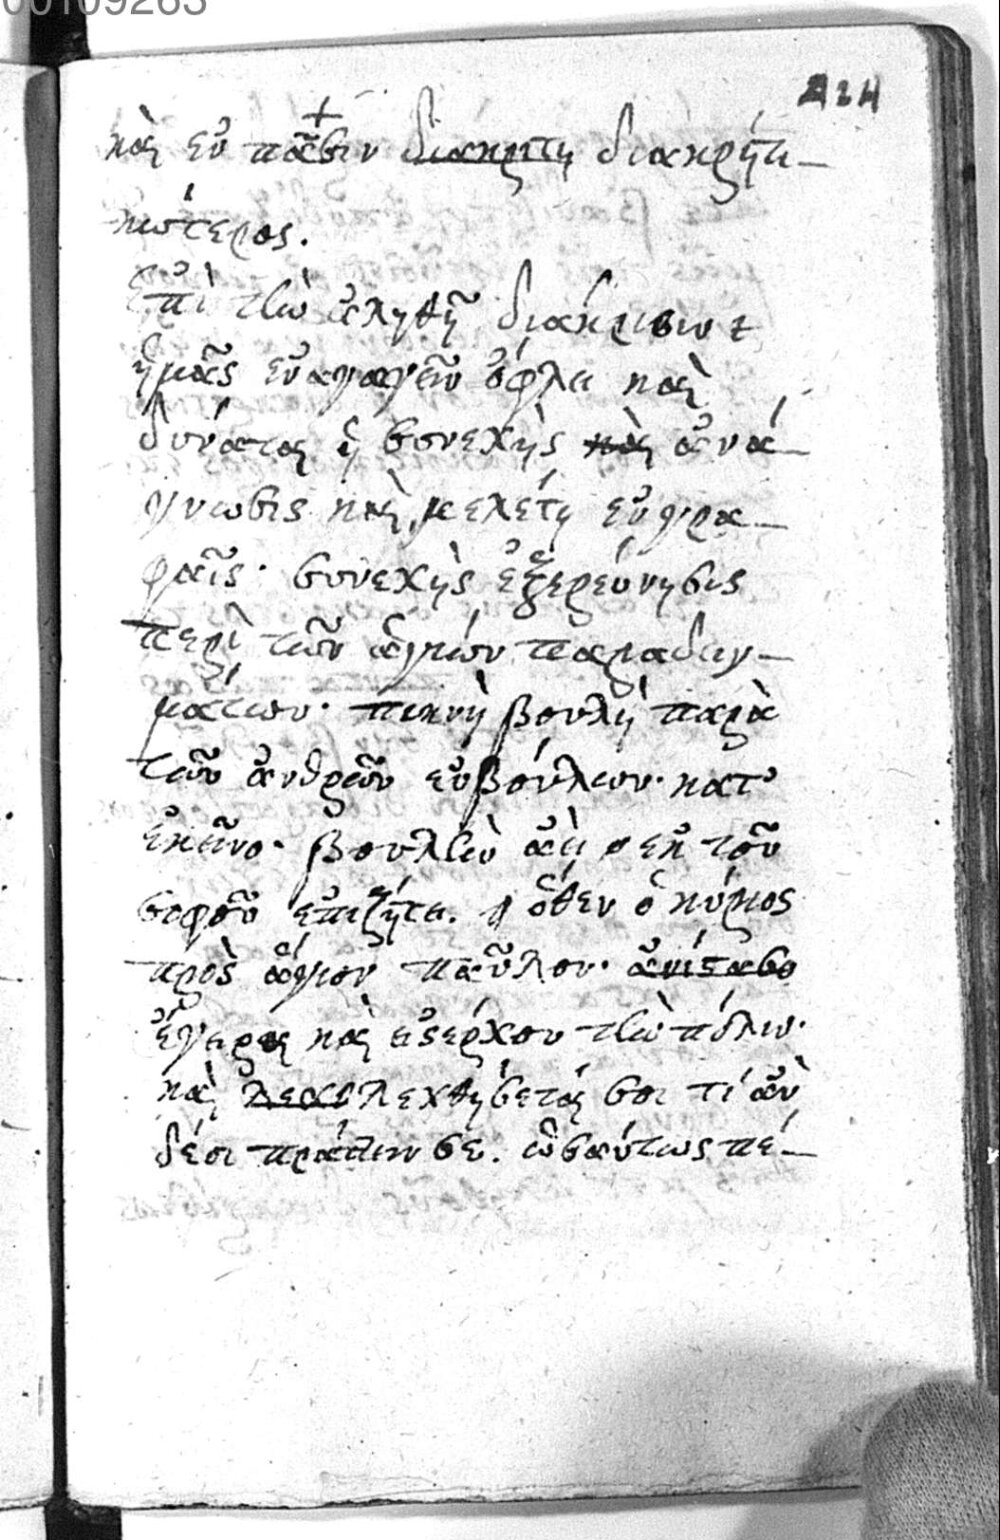 00109263
424
καὶ ἐν πᾶσιν διακριτη διακρητι-
κώτερος.
Ἐπὶ τὴν ἀληθῆ διάκρισιν
ἡμᾶς ἐναγαγεῖν ὀφλει καὶ
δύναται ἡ συνεχὴς καὶ ἀνά-
γνωσις καὶ μελέτη ἐν γρα-
φαῖς· συνεχὴς ἐξερεύνησις
περὶ τῶν ἁγίων παραδειγ-
μάτων· πικνὴ βουλὴ παρὰ
τῶν ἀνδρῶν εὐβούλων· κατ'
ἐκεῖνο· βουλὴν ἀεὶ ἐκ τοῦ
σοφοῦ ἐπιζήτει. ὅθεν ὁ κύριος
πρὸς ἅγιον παῦλον· ἀνίστασο
ἔγειραι καὶ εἰσέρχου τὴν πόλιν·
καὶ λεχθήσεταί σοι τί ἂν
δέοι πράττειν σε. ὡσαύτως πέ-